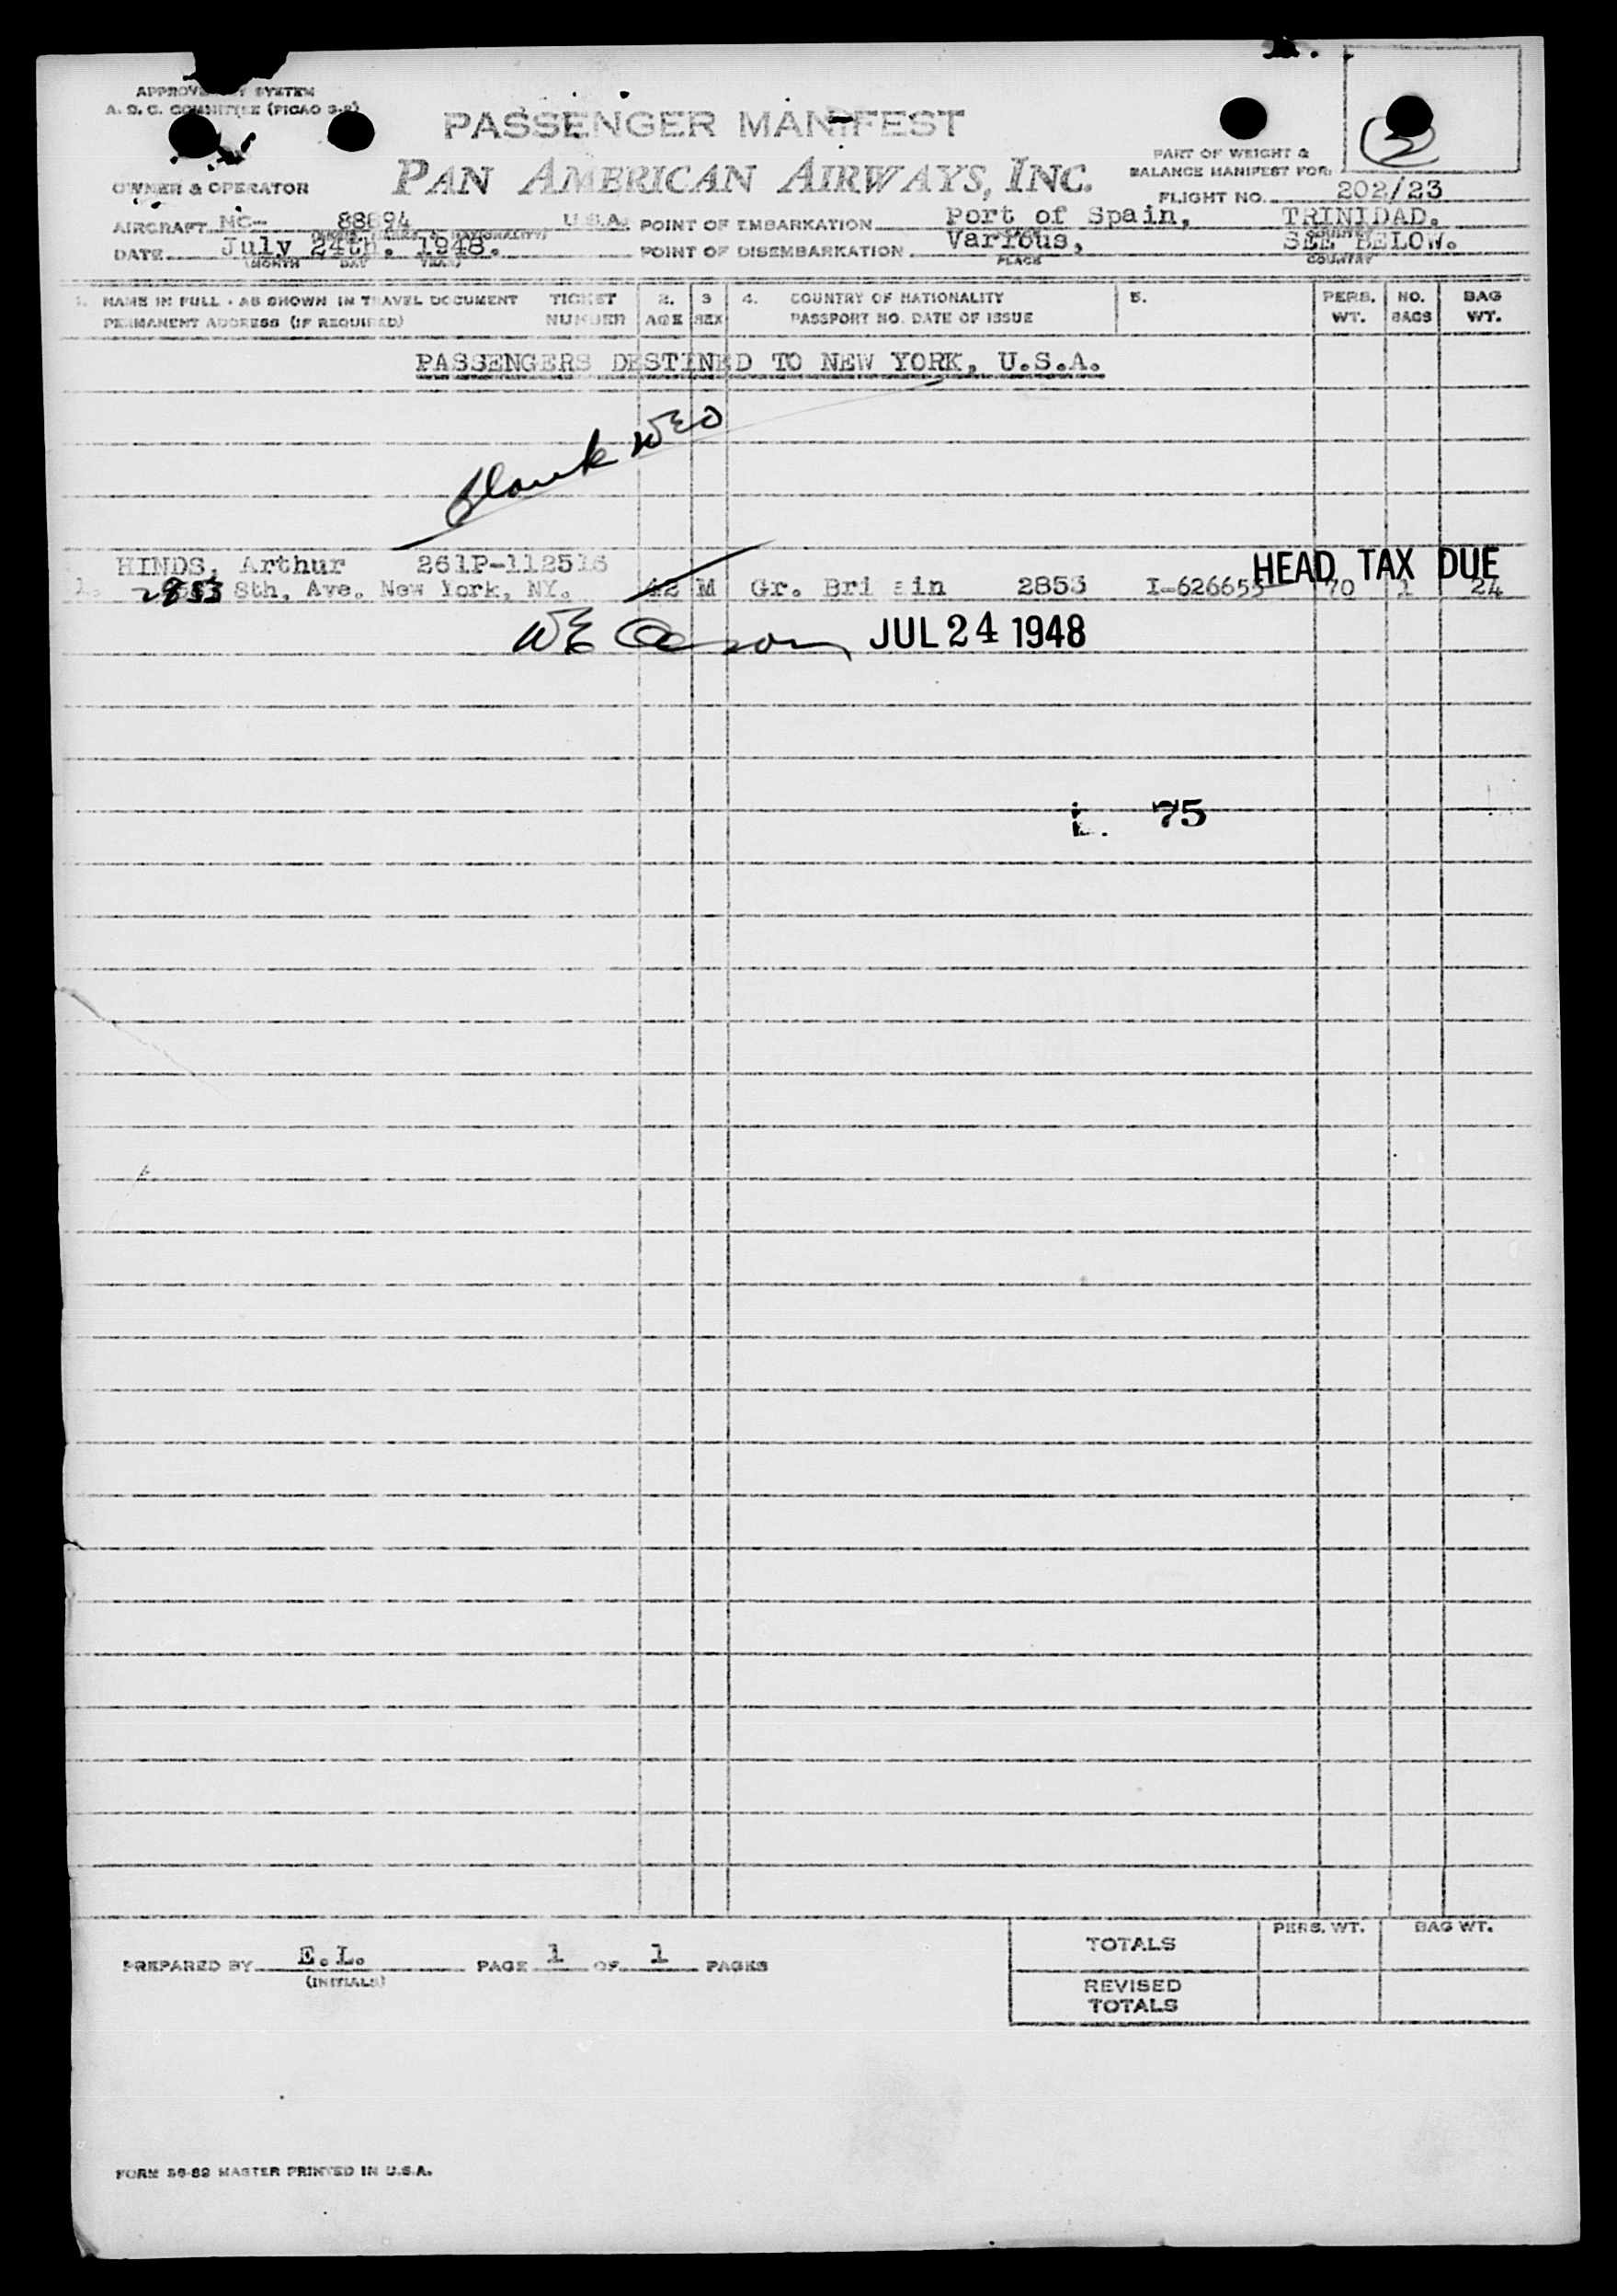 A. O. C. COMMITTEE (PICAO 3-2)
PASSENGER MANIFEST
PART OF WEIGHT &
BALANCE MANIFEST FOR:
OWNER & OPERATOR PAN AMERICAN AIRWAYS, INC.
FLIGHT NO. 202/23
AIRCRAFT NC- 88894 U.S.A. POINT OF EMBARKATION Port of Spain, TRINIDAD.
DATE July 24th. 1948. POINT OF DISEMBARKATION Various, SEE BELOW.
(MONTH DAY YEAR) PLACE COUNTRY
1. NAME IN FULL - AS SHOWN IN TRAVEL DOCUMENT TICKET 2. 3 4. COUNTRY OF NATIONALITY 5. PERS. NO. BAG
PERMANENT ADDRESS (IF REQUIRED) NUMBER AGE SEX PASSPORT NO. DATE OF ISSUE WT. BAGS WT.
PASSENGERS DESTINED TO NEW YORK, U.S.A.
Blank WEO
HINDS, Arthur 261P-112516 HEAD TAX DUE
1. 2853 8th, Ave. New York, NY. 42 M Gr. Bri ain 2853 I-626655 70 1 24
JUL 24 1948
75
PERS. WT. BAG WT.
TOTALS
PREPARED BY E.L. PAGE 1 OF 1 PAGES
(INITIALS)
REVISED
TOTALS
FORM 36-82 MASTER PRINTED IN U.S.A.